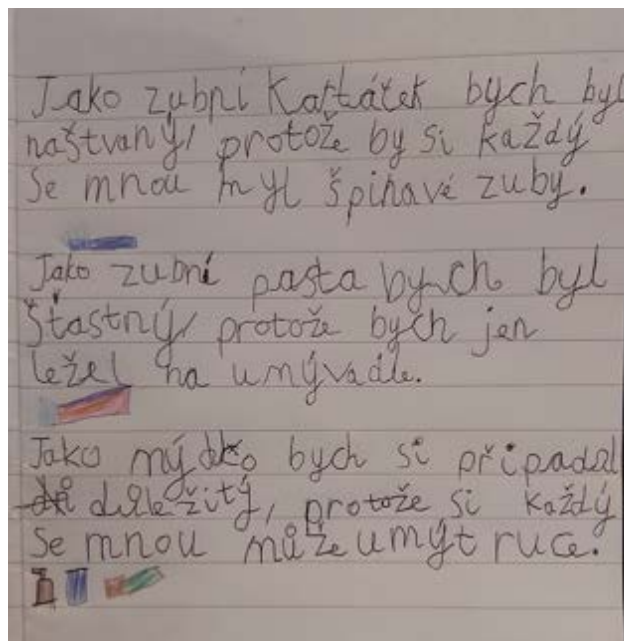 Jako zubní Kartátek bych byl
naštvaný, protože by si každý
Se mnou myl špinavé zuby.
Jako zubní pasta bych byl
Šťastný, protože bych jen
ležel na umývadle.
Jako mýdlo bych si připadal
důležitý, protože si každý
Se mnou může umýt ruce.